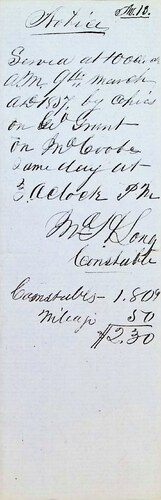 No. 10.
Notice
Served at 10 oclock
A.M. 9th march
AD 1857 by copies
on Grant
on Mc Coobs
same day at
Oclock P M
Long
Constable
Constables - 1.80
Mileage 50
$2.30